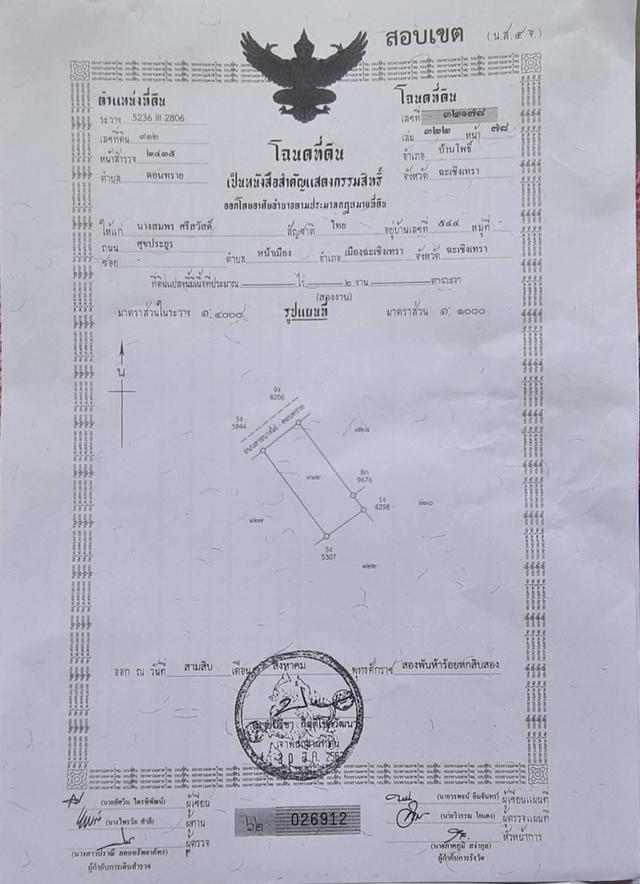 สอบเขต (น.ส.๔ จ.)
ตำแหน่งที่ดิน
ระวาง 5236 III 2806
เลขที่ดิน ๙๑๒
หน้าสำรวจ ๒๔๓๕
ตำบล ดอนทราย
โฉนดที่ดิน
เลขที่ ๓๒๑๗๘
เล่ม ๓๒๒ หน้า ๗๘
อำเภอ บ้านโพธิ์
จังหวัด ฉะเชิงเทรา
โฉนดที่ดิน
เป็นหนังสือสำคัญแสดงกรรมสิทธิ์
ออกโดยอาศัยอำนาจตามประมวลกฎหมายที่ดิน
ให้แก่ นางสมพร ศรีสวัสดิ์ สัญชาติ ไทย อยู่บ้านเลขที่ ๕๔๔ หมู่ที่ -
ถนน ศุขประยูร
ซอย - ตำบล หน้าเมือง อำเภอ เมืองฉะเชิงเทรา จังหวัด ฉะเชิงเทรา
ที่ดินแปลงนี้มีเนื้อที่ประมาณ ไร่ ๒ งาน ตารางวา
(สองงาน)
มาตราส่วนในระวาง ๑:๔๐๐๐ รูปแผนที่ มาตราส่วน ๑:๑๐๐๐
น
9ง
4206
3ง
5844
8ก
9676
1ง
4298
๗๓๐
๑๒๗
5ง
5307
๑๒๒
ออก ณ วันที่ สามสิบ เดือน สิงหาคม พุทธศักราช สองพันห้าร้อยหกสิบสอง
เจ้าพนักงานที่ดิน
(นายอัศวิน ไตรพิพัฒน์) ผู้เขียน
(นางไพรวัล สำลี) ผู้ทาน
ผู้ตรวจ
ผู้กำกับการเดินสำรวจ
๖๒ 026912
(นายวรพจน์ อินจันทร์) ผู้เขียนแผนที่
ผู้ตรวจแผนที่
หัวหน้าการ
ผู้กำกับการรังวัด